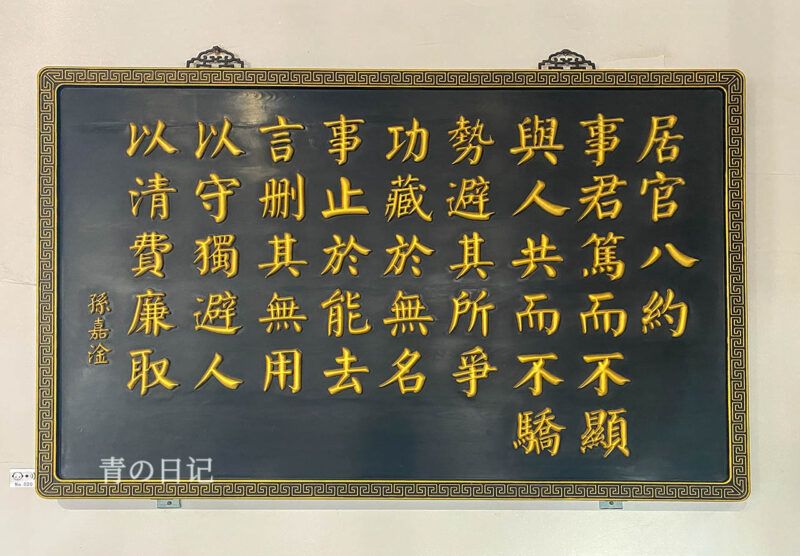 居官八約
事君篤而不顯
與人共而不驕
勢避其所爭
功藏於無名
事止於能去
言删其無用
以守獨避人
以清費廉取
孫嘉淦
青の日记
No.020